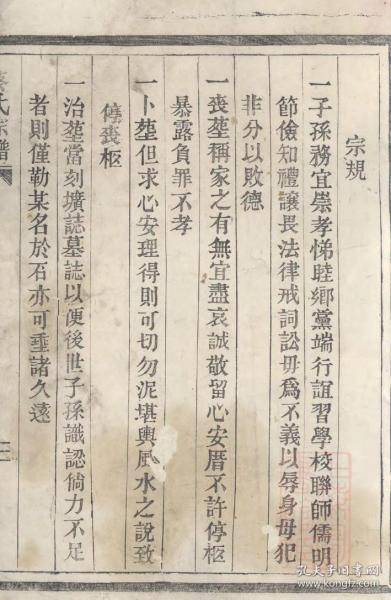 宗規
一子孫務宜崇孝悌睦鄉黨端行誼習學校聯師儒明
節儉知禮讓畏法律戒詞訟毋爲不義以辱身毋犯
非分以敗德
一喪塟稱家之有無宜盡哀誠敬留心安厝不許停柩
暴露負罪不孝
一卜塟但求心安理得則可切勿泥堪輿風水之說致
停喪柩
一治塟當刻壙誌墓誌以便後世子孫識認倘力不足
者則僅勒某名於石亦可垂諸久遠
氏宗譜
孔夫子旧书网
www.kongfz.com